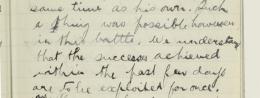 same time as his own. Such
a thing was possible however
in this battle, we understand
that the successes achieved
within the past few days
are to be exploited for once.